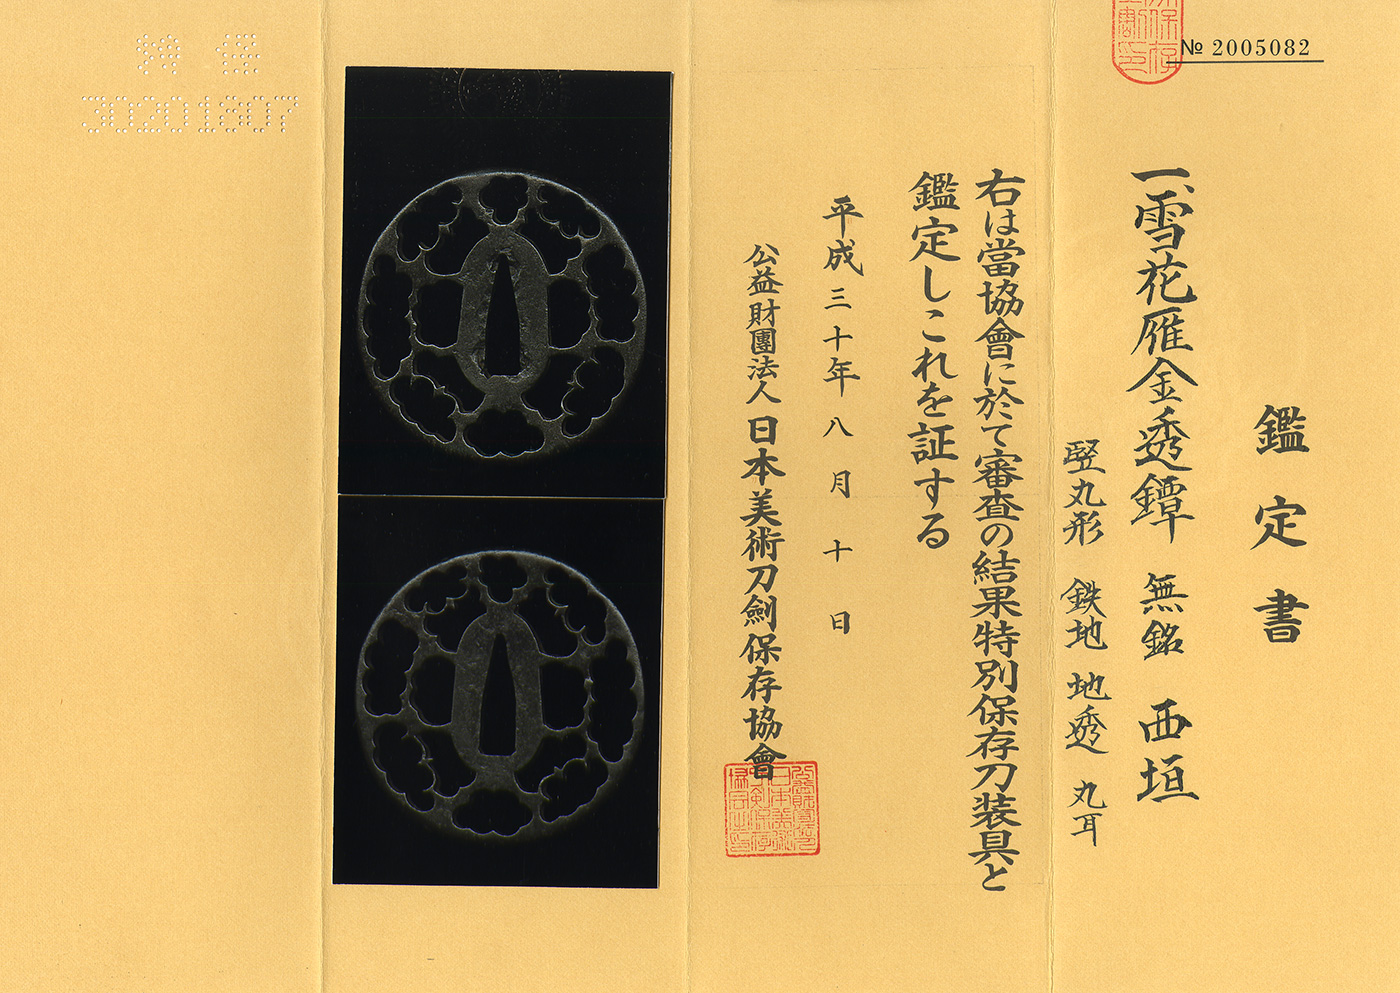 № 2005082
鑑定書
一、雪花雁金透鐔 無銘 西垣
竪丸形 鉄地 地透 丸耳
右は當協會に於て審査の結果特別保存刀装具と
鑑定しこれを証する
平成三十年八月十日
公益財團法人 日本美術刀劍保存協會
30201807